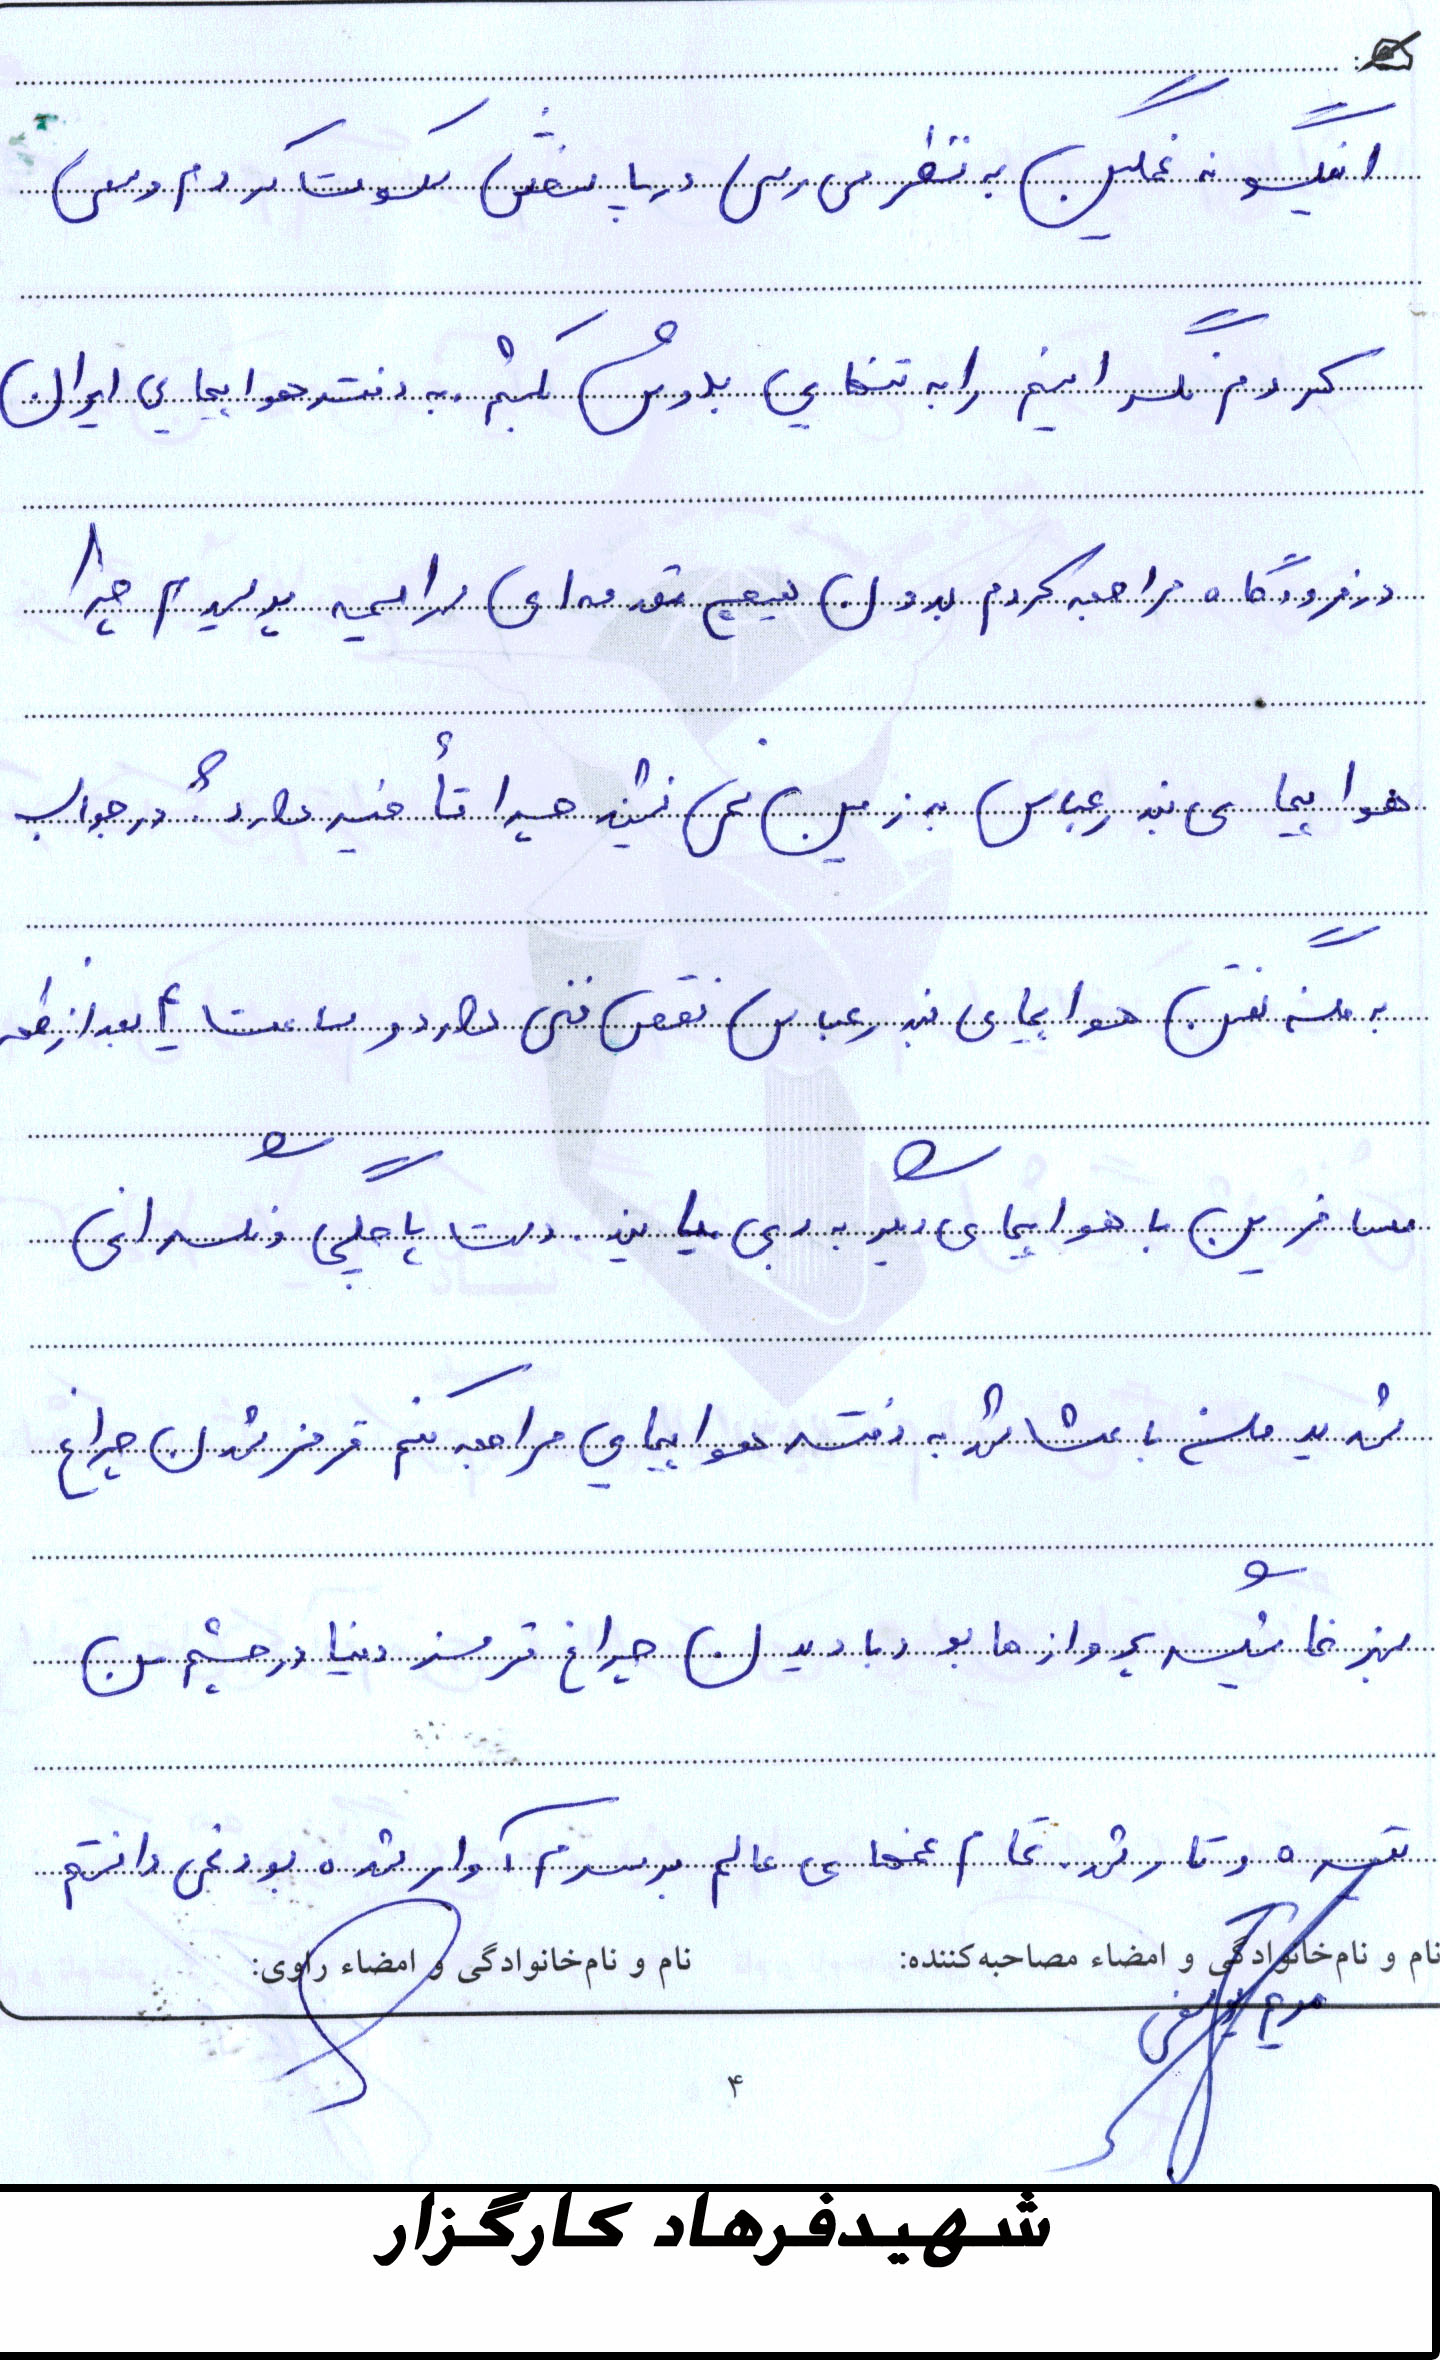 اینگونه غمگین به نظر می‌رسی در پاسخش سکوت کردم و سعی
کردم نگرانیم را به تنهایی بدوش بکشم. به دفتر هواپیمایی ایران
در فرودگاه مراجعه کردم بدون هیچ مقدمه‌ای سراسیمه پرسیدم چرا
هواپیمای بندرعباس به زمین نمی‌نشیند چرا تأخیر دارد؟ در جواب
به من گفتن هواپیمای بندرعباس نقص فنی دارد و ساعت ۴ بعدازظهر
مسافرین با هواپیمای دیگر به دبی میایند. دستپاچگی و نگرانی
شدید من باعث شد به دفتر هواپیمایی مراجعه کنم قرمز شدن چراغ
سبز نمایشگر پروازها بود با دیدن چراغ قرمز دنیا در چشم من
تیره و تار شد. تمام غمهای عالم بر سرم آوار شده بود نمی‌دانستم
نام و نام‌خانوادگی و امضاء مصاحبه‌کننده: نام و نام‌خانوادگی و امضاء راوی:
مریم
۴
شهیدفرهاد کارگزار